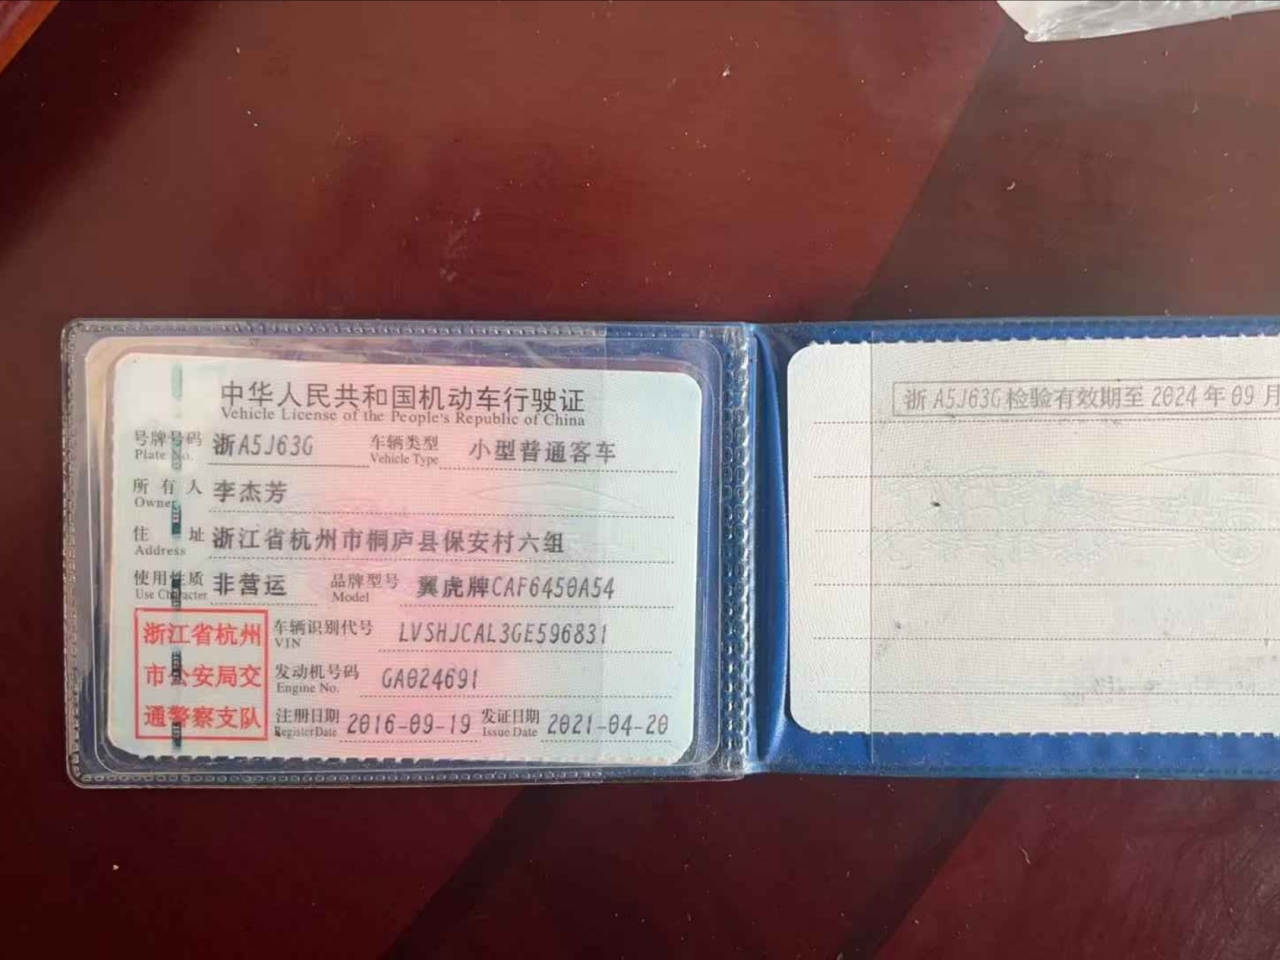 中华人民共和国机动车行驶证
Vehicle License of the People's Republic of China
号牌号码 浙A5J63G 车辆类型 小型普通客车
Plate No. Vehicle Type
所有人 李杰芳
Owner
住址 浙江省杭州市桐庐县保安村六组
Address
使用性质 非营运 品牌型号 翼虎牌CAF6450A54
Use Character Model
浙江省杭州市公安局交通警察支队
车辆识别代号 LVSHJCAL3GE596831
VIN
发动机号码 GA024691
Engine No.
注册日期 2016-09-19 发证日期 2021-04-20
Register Date Issue Date
浙A5J63G检验有效期至2024年09月